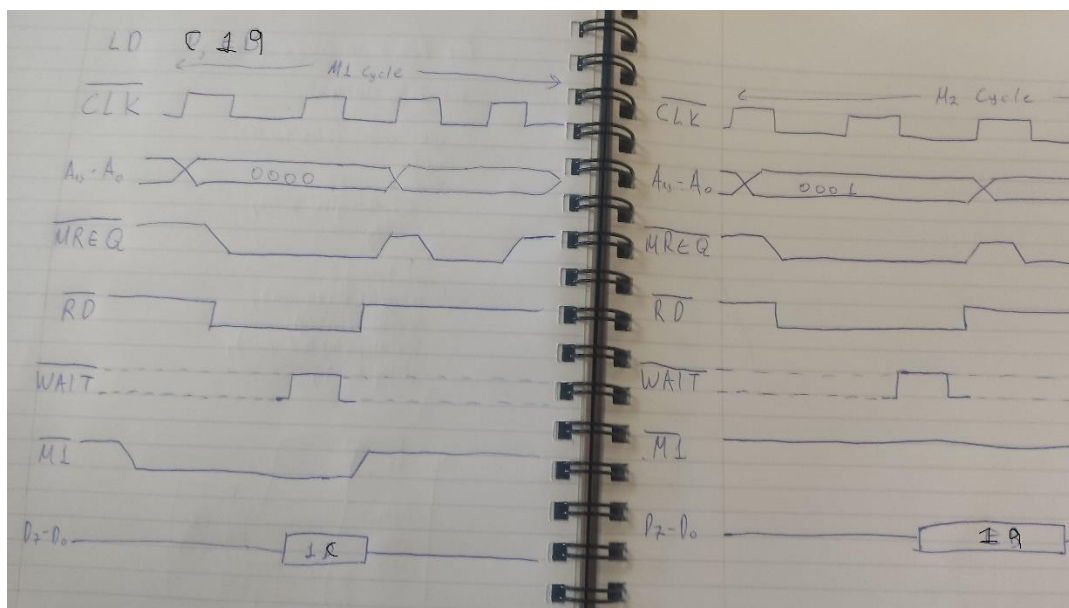 LD C, 19
M1 Cycle
CLK
A15-A0 0000
MREQ
RD
WAIT
M1
D7-D0 1C
M2 Cycle
CLK
A15-A0 0001
MREQ
RD
WAIT
M1
D7-D0 19